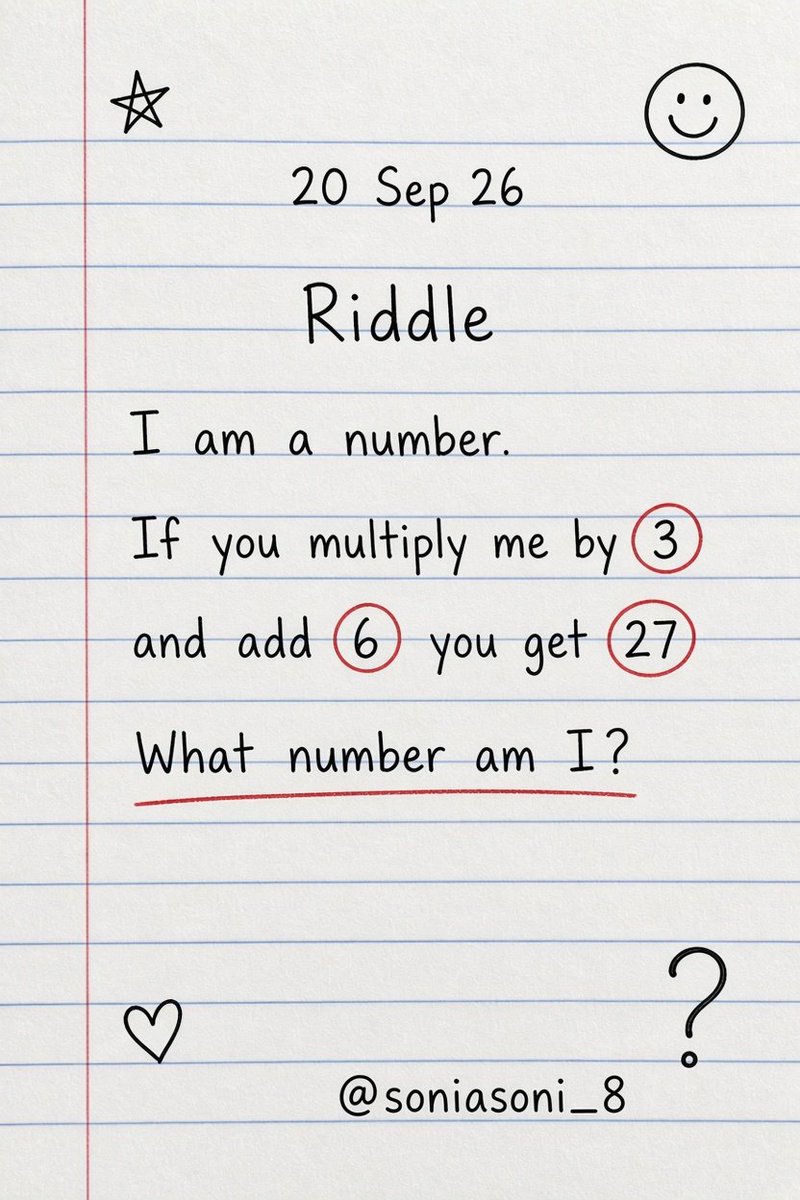 20 Sep 26
Riddle
I am a number.
If you multiply me by 3
and add 6 you get 27
What number am I?
?
@soniasoni_8